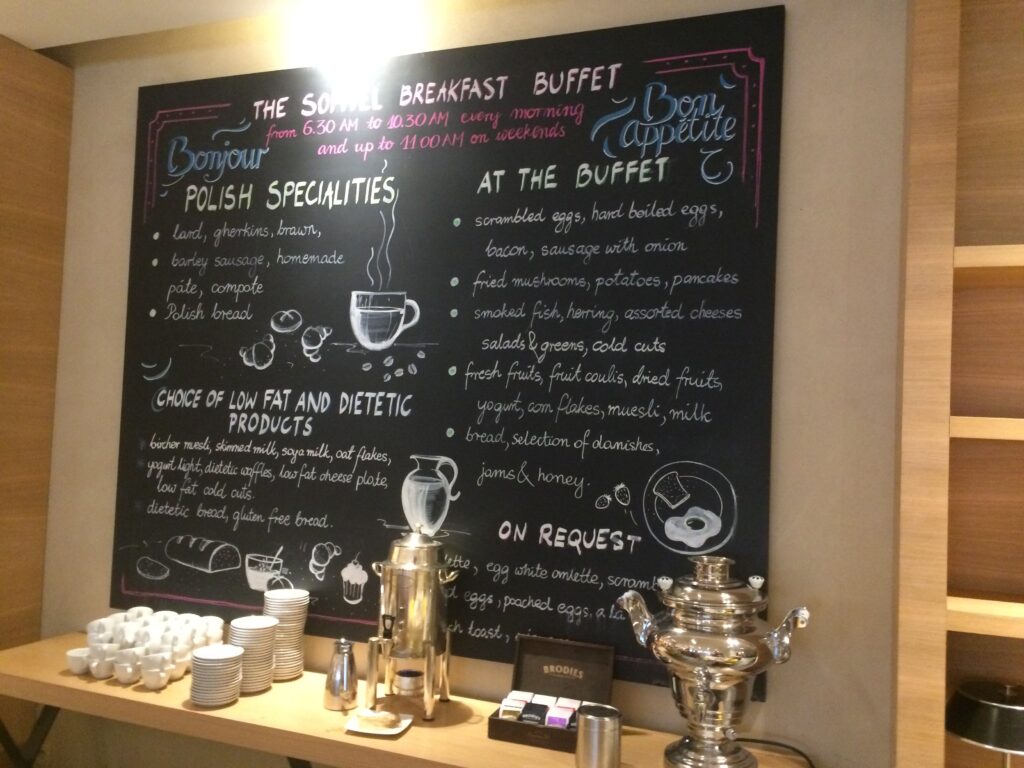 THE BREAKFAST BUFFET
from 6.30 AM to 10.30 AM every morning
and up to 11 00 AM on weekends
Bonjour
Bon
appétite
POLISH SPECIALITIES
lard, gherkins, brawn,
barley sausage, homemade
pate, compote
Polish bread
CHOICE OF LOW FAT AND DIETETIC
PRODUCTS
bircher muesli, skimmed milk, soya milk, oat flakes,
yogurt light, dietetic waffles, low fat cheese plate,
low fat cold cuts.
dietetic bread, gluten free bread.
AT THE BUFFET
scrambled eggs, hard boiled eggs,
bacon, sausage with onion
fried mushrooms, potatoes, pancakes
smoked fish, herring, assorted cheeses
salads & greens, cold cuts
fresh fruits, fruit coulis, dried fruits,
yogurt, corn flakes, muesli, milk
bread, selection of danishes,
jams & honey.
ON REQUEST
egg white omlette,
eggs, poached eggs, a la
toast,
BRODIES